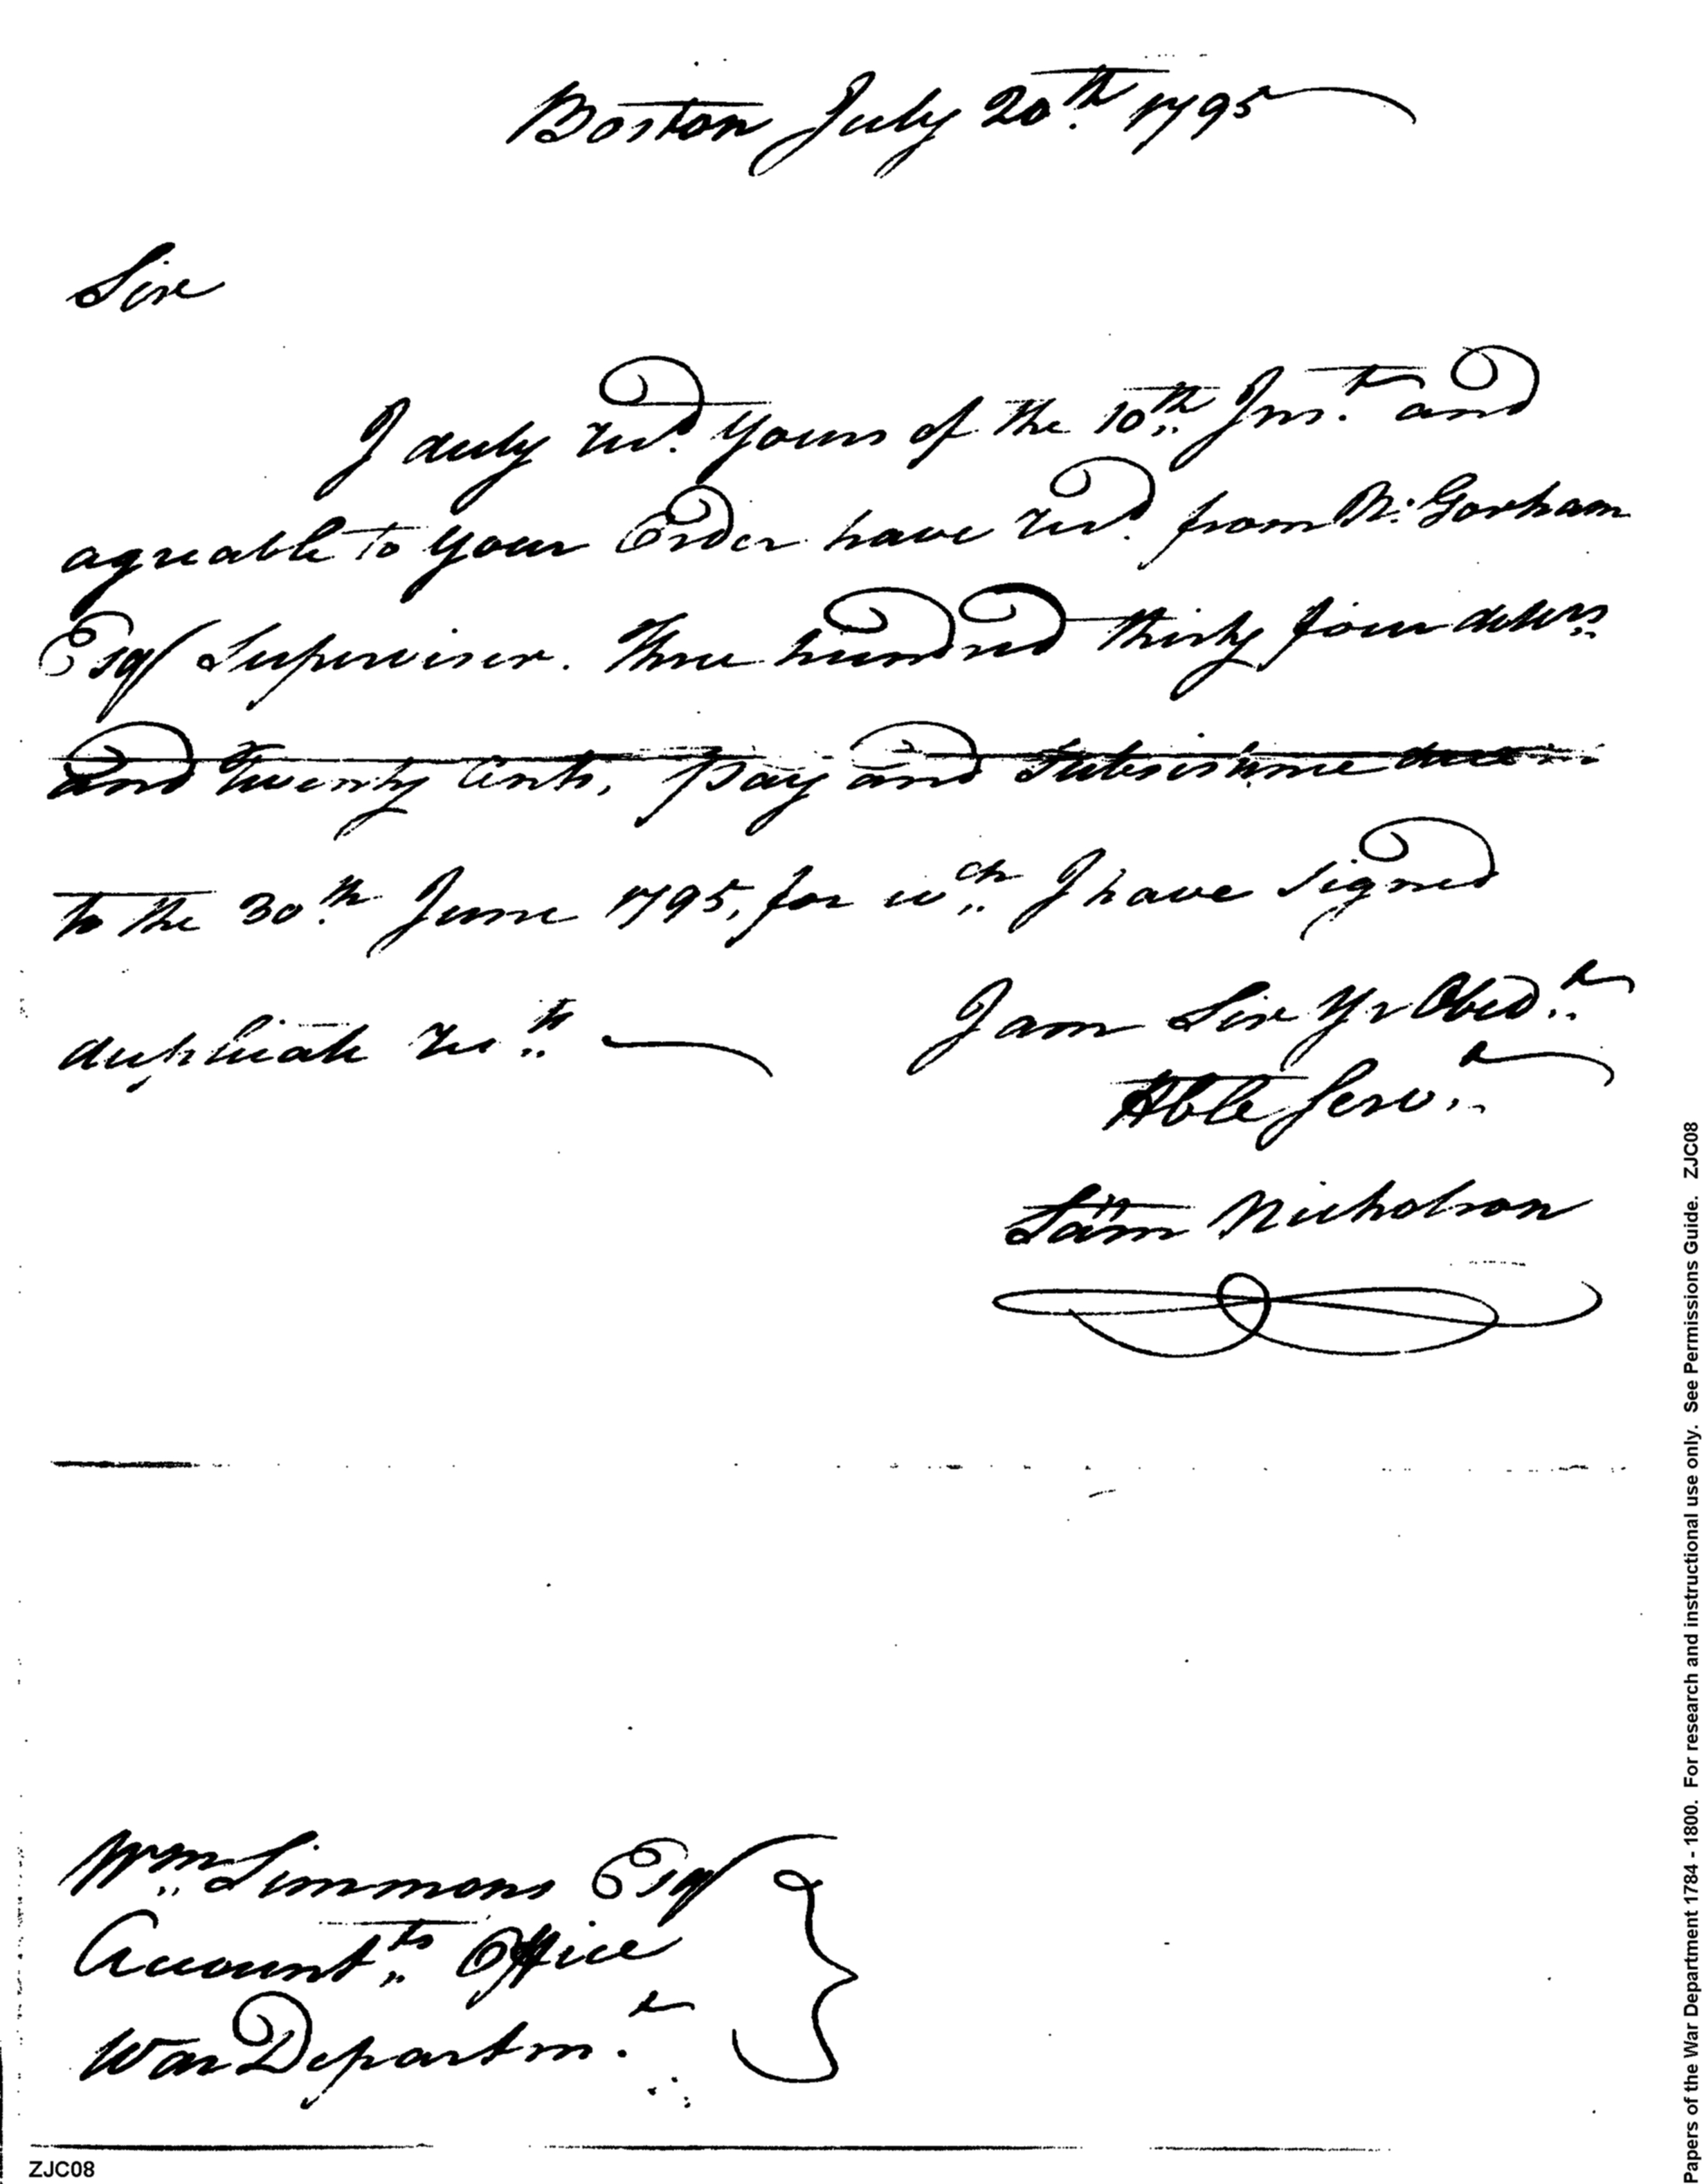 Boston July 20th. 1795
Sir
I duly recd. yours of the 10th,, Inst. and
agreable to your Order have recd. from N: Gorham
Esq Superviser. Three hundred thirty four dollrs,,
and twenty Cents, pay and Subsistance due
to the 30th. June 1795, for wch,, I have signed
duplicate rect,,
I am Sir Yr Obedt,,
Hble Servt,,
Sam Nicholson
Wm,, Simmons Esq
Accountts,, Office
War Departmt.
ZJC08
Papers of the War Department 1784 - 1800. For research and instructional use only. See Permissions Guide. ZJC08